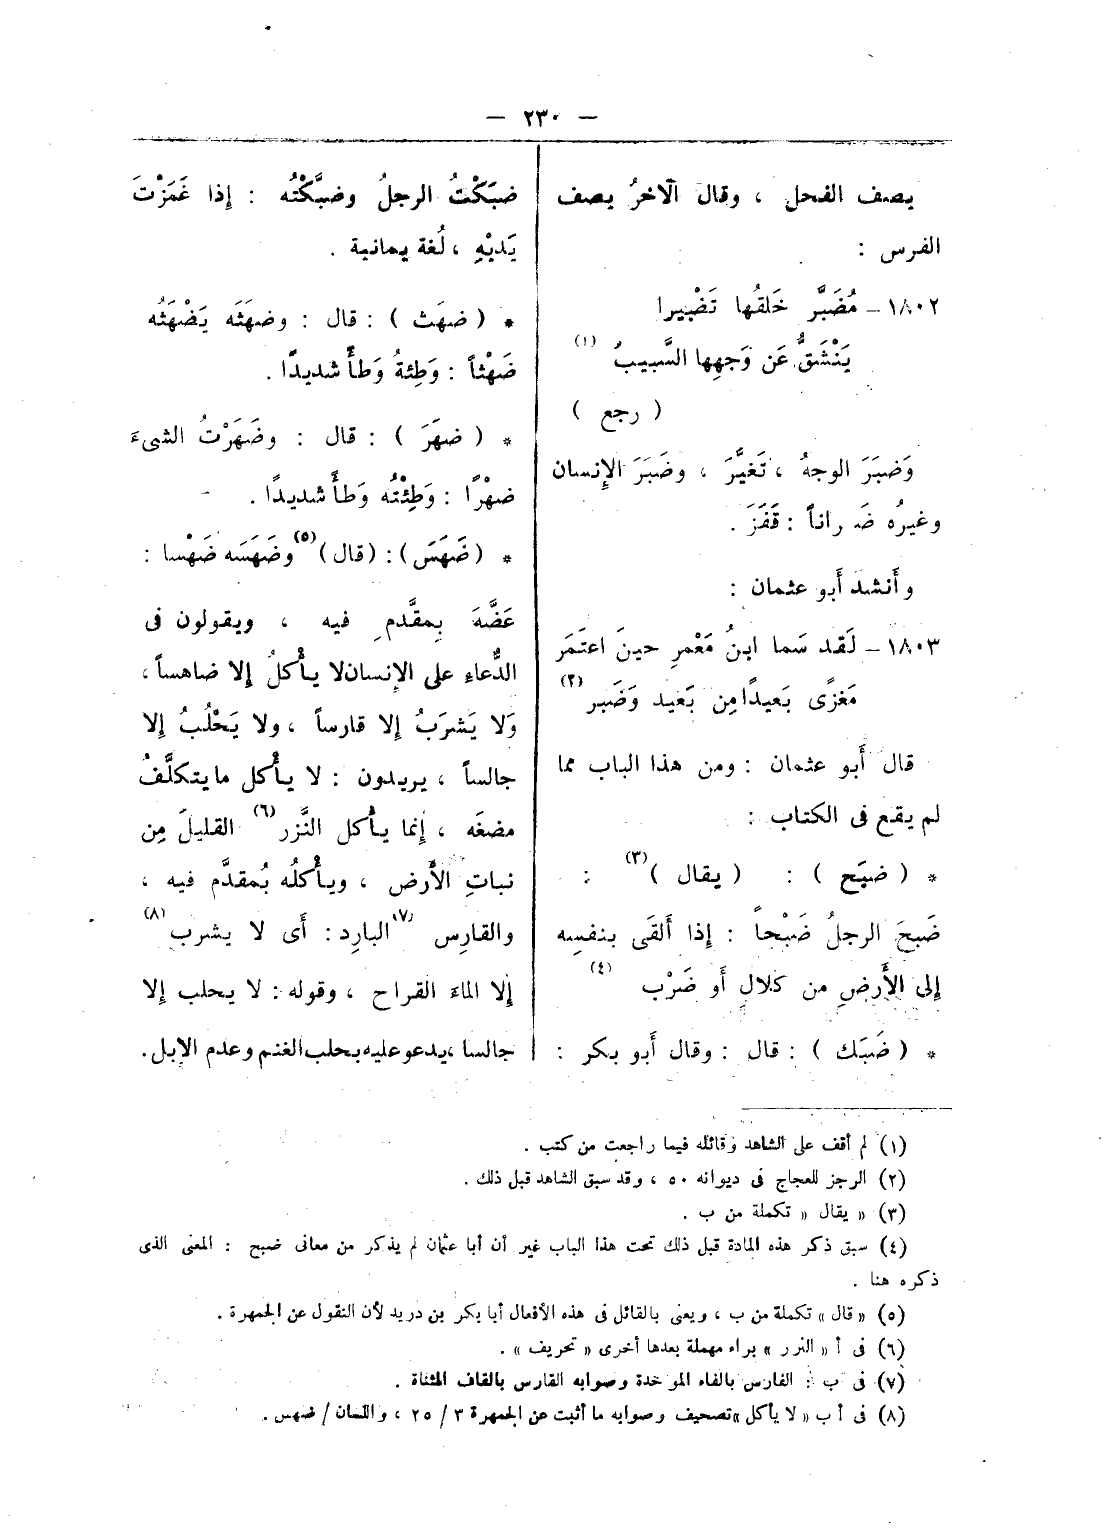 — ٢٣٠ —
يصف الفحل ، وقال الآخرُ يصف
الفرس :
١٨٠٢ – مُضَبَّر خَلقُها تَضْبيرا
يَنْشَقُّ عَن وَجهِها السَّبيبُ (١)
( رجع )
وَضبَرَ الوجهُ ، تَغيَّرَ ، وضَبَرَ الإنسان
وغيرُه ضَـ راناً : قَفَزَ .
وأَنشد أَبو عثمان :
١٨٠٣ – لَقد سَما ابنُ مَعْمرِ حينَ اعتَمَر
مَغزًى بَعيدًا مِن بَعيد وَضَبر (٢)
قال أَبو عثمان : ومن هذا الباب مما
لم يقع فى الكتاب :
* ( ضبَح ) : ( يقال ) (٣) :
ضَبحَ الرجلُ ضَبْحاً : إذا أَلقَى بنفسِه
إلى الأَرضِ من كلالٍ أَو ضَرْب (٤)
* ( ضَبَك ) : قال : وقال أَبو بكر :
ضبَكْتُ الرجلُ وضبَّكْتُه : إذا غَمَزْتَ
يَديْهِ ، لُغة يمانية .
* ( ضهَث ) : قال : وضهَثَه يَضْهَثُه
ضَهْثاً : وَطِئةُ وَطأً شديدًا .
* ( ضهَرَ ) : قال : وضَهَرْتُ الشىءَ
ضهْرًا : وَطِئْتُه وَطأً شديدًا .
* ( ضَهَسَ ) : ( قال ) (٥) وضَهَسَه ضَهْسا :
عَضَّهَ بِمقدَّمِ فيه ، ويقولون فى
الدُّعاءِ على الإنسان لا يأْكلُ إلا ضاهساً ،
وَلا يَشرَبُ إلا قارساً ، ولا يَحْلُبُ إلا
جالساً ، يريدون : لا يأْكل ما يتكلَّفُ
مضغَه ، إنما يأْكل النَّزر (٦) القليلَ مِن
نباتِ الأَرض ، ويأْكلُه بُمقدَّم فيه ،
والقارِس (٧) البارِد : أَى لا يشرب (٨)
إلا الماءَ القراح ، وقوله : لا يحلب إلا
جالسا ، يدعو عليه بحلب الغنم وعدم الإبل .
(١) لم أقف على الشاهد وقائله فيما راجعت من كتب .
(٢) الرجز للعجاج فى ديوانه ٥٠ ، وقد سبق الشاهد قبل ذلك .
(٣) « يقال » تكملة من ب .
(٤) سبق ذكر هذه المادة قبل ذلك تحت هذا الباب غير أن أبا عثمان لم يذكر من معانى ضبح : المعنى الذى
ذكره هنا .
(٥) « قال » تكملة من ب ، ويعنى بالقائل فى هذه الأفعال أبا بكر بن دريد لأن النقول عن الجمهرة .
(٦) فى أ « النرر » براء مهملة بعدها أخرى « تحريف » .
(٧) فى ب : الفارس بالفاء الموحدة وصوابه القارس بالقاف المثناة .
(٨) فى أ ب « لا يأكل » تصحيف وصوابه ما أثبت عن الجمهرة ٣ / ٢٥ ، واللسان / ضهس .